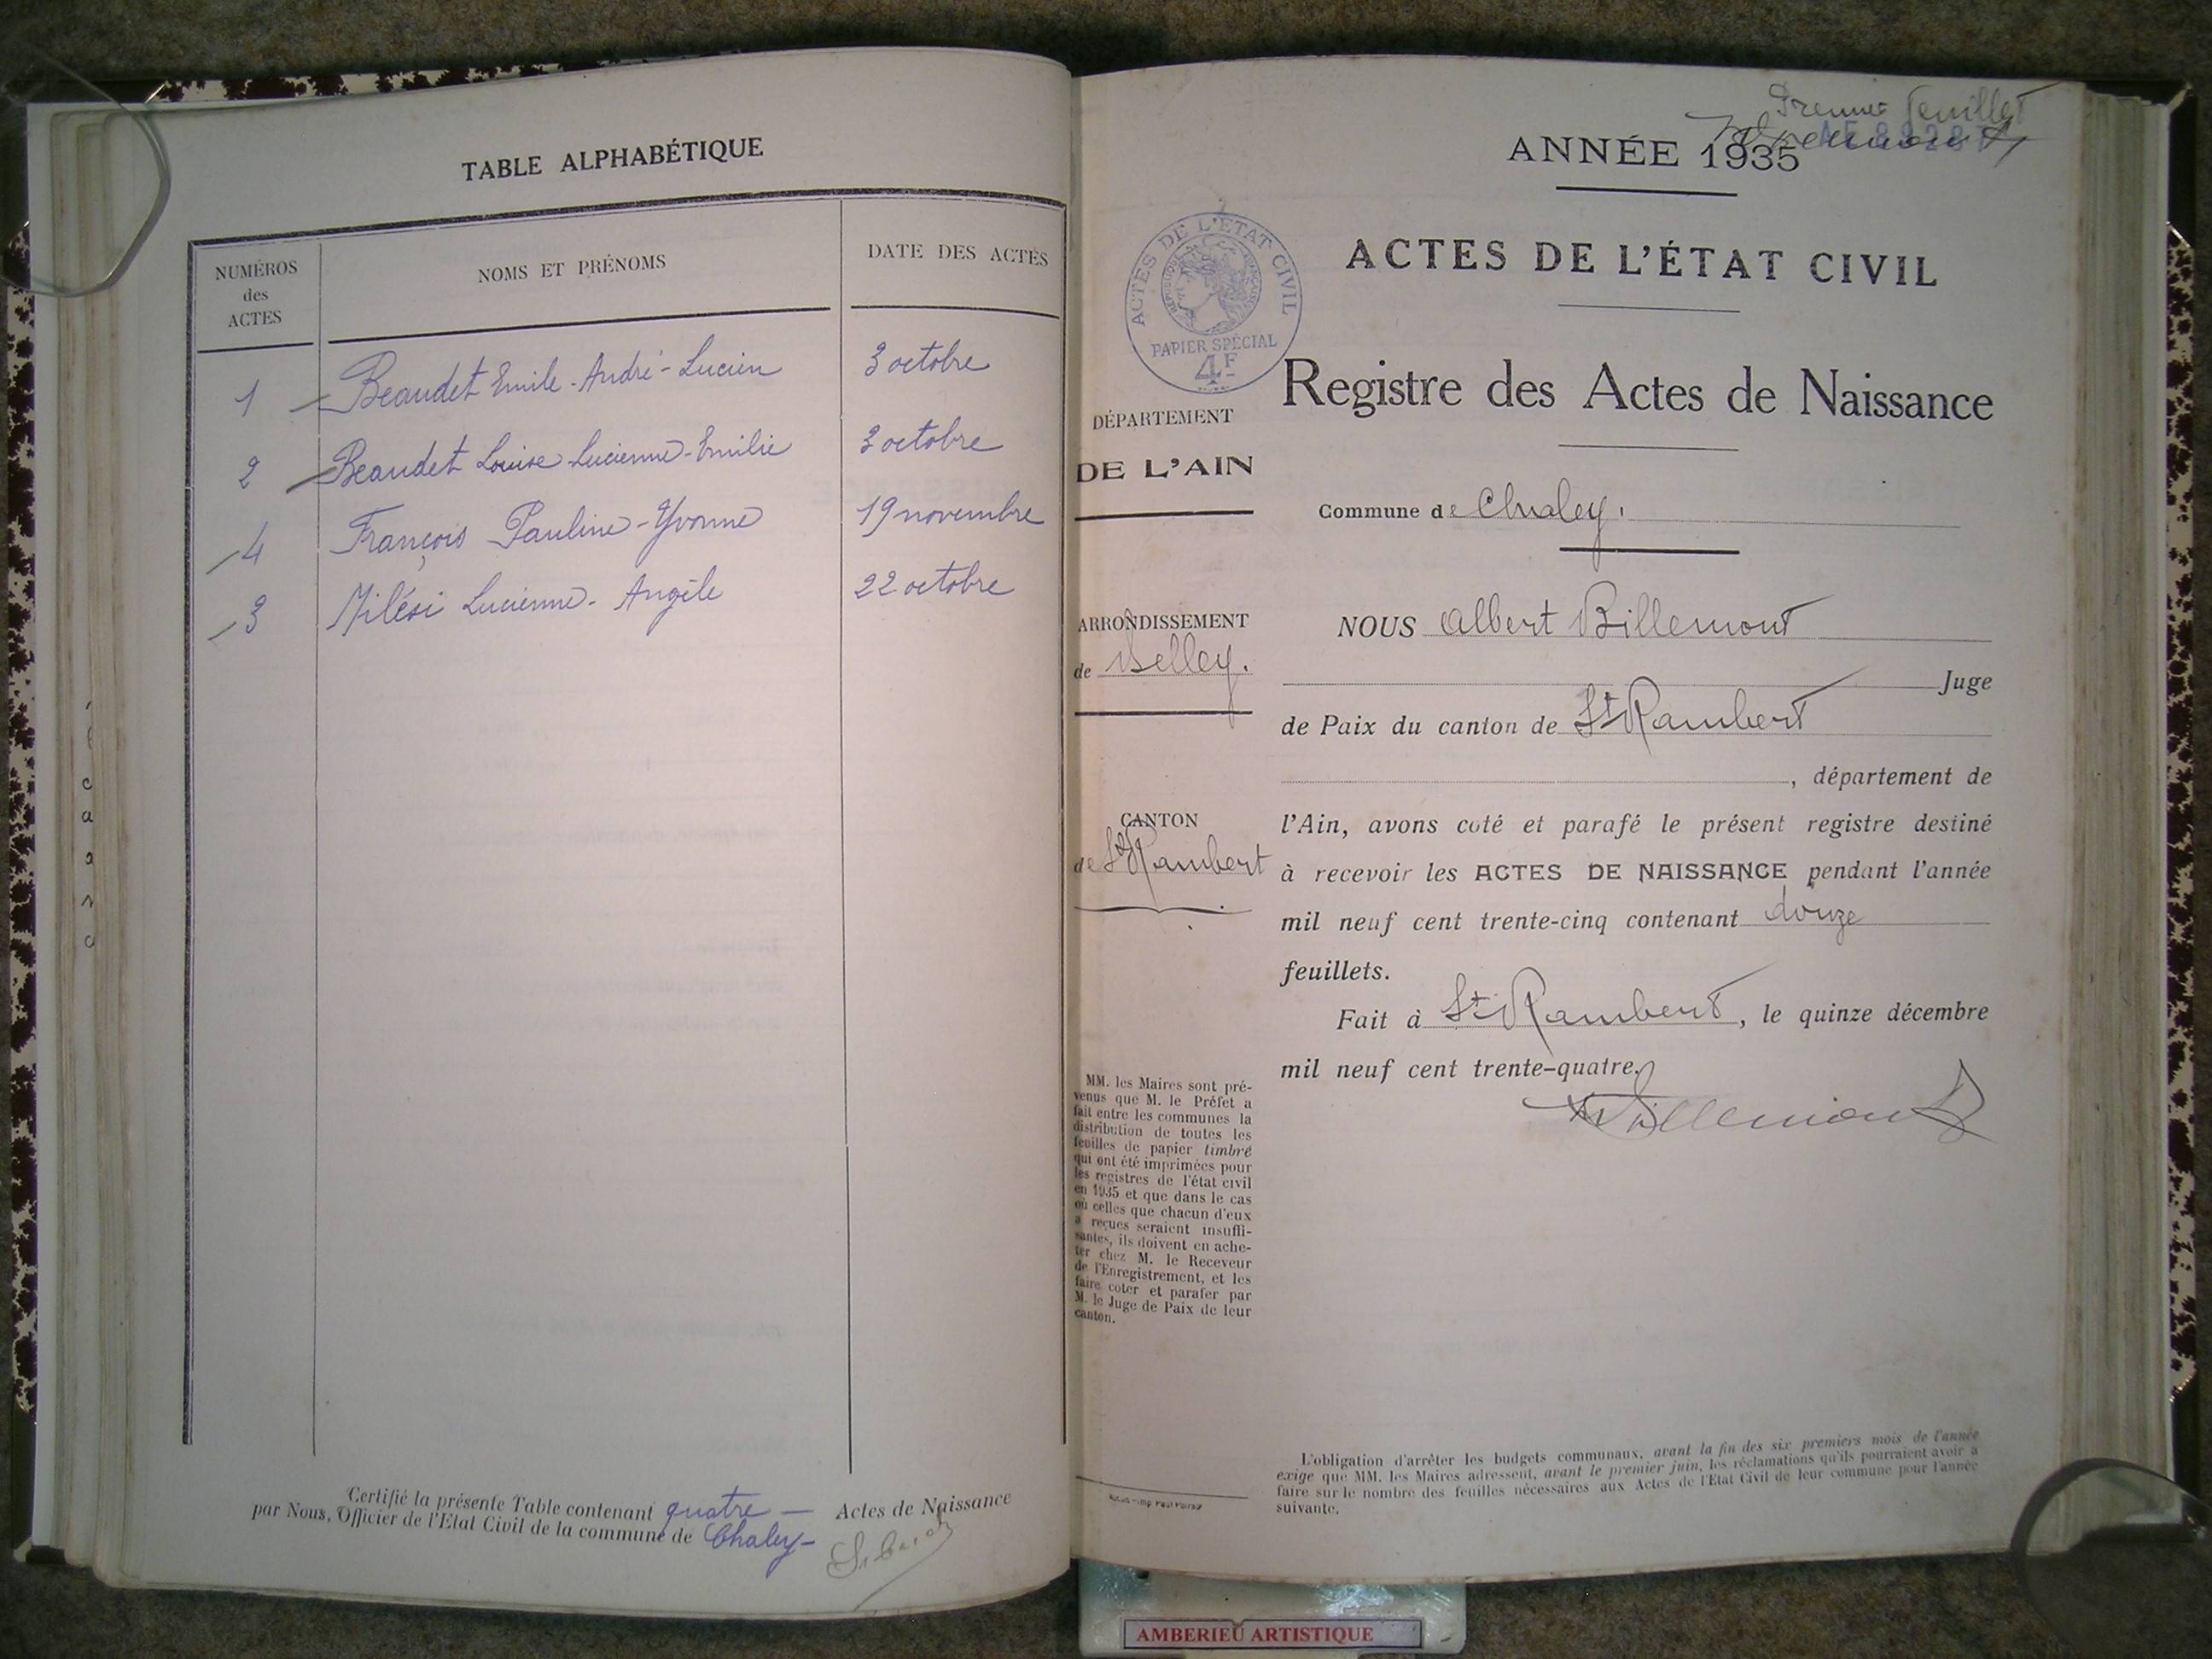 TABLE ALPHABÉTIQUE
NUMÉROS
des
ACTES
NOMS ET PRÉNOMS
DATE DES ACTES
1 Beaudet Emile-André-Lucien 3 octobre
2 Beaudet Louise Lucienne-Emilie 3 octobre
4 François Pauline-Yvonne 19 novembre
3 Milési Lucienne-Angèle 22 octobre
Certifié la présente Table contenant quatre — Actes de Naissance
par Nous, Officier de l'Etat Civil de la commune de Chaley-
Premier feuillet
ANNÉE 1935
ACTES DE L'ÉTAT CIVIL
Registre des Actes de Naissance
ACTES DE L'ÉTAT CIVIL
RÉPUBLIQUE FRANÇAISE
PAPIER SPÉCIAL
4F
DÉPARTEMENT
DE L'AIN
ARRONDISSEMENT
de Belley.
CANTON
de St Rambert
MM. les Maires sont pré-
venus que M. le Préfet a
fait entre les communes la
distribution de toutes les
feuilles de papier timbré
qui ont été imprimées pour
les registres de l'état civil
en 1935 et que dans le cas
où celles que chacun d'eux
a reçues seraient insuffi-
santes, ils doivent en ache-
ter chez M. le Receveur
de l'Enregistrement, et les
faire coter et parafer par
M. le Juge de Paix de leur
canton.
Commune de Chaley.
NOUS Albert Billemont
Juge
de Paix du canton de St Rambert
, département de
l'Ain, avons coté et parafé le présent registre destiné
à recevoir les ACTES DE NAISSANCE pendant l'année
mil neuf cent trente-cinq contenant douze
feuillets.
Fait à St Rambert, le quinze décembre
mil neuf cent trente-quatre.
Billemont
L'obligation d'arrêter les budgets communaux, avant la fin des six premiers mois de l'année
exige que MM. les Maires adressent, avant le premier juin, les réclamations qu'ils pourraient avoir à
faire sur le nombre des feuilles nécessaires aux Actes de l'Etat Civil de leur commune pour l'année
suivante.
AMBERIEU ARTISTIQUE